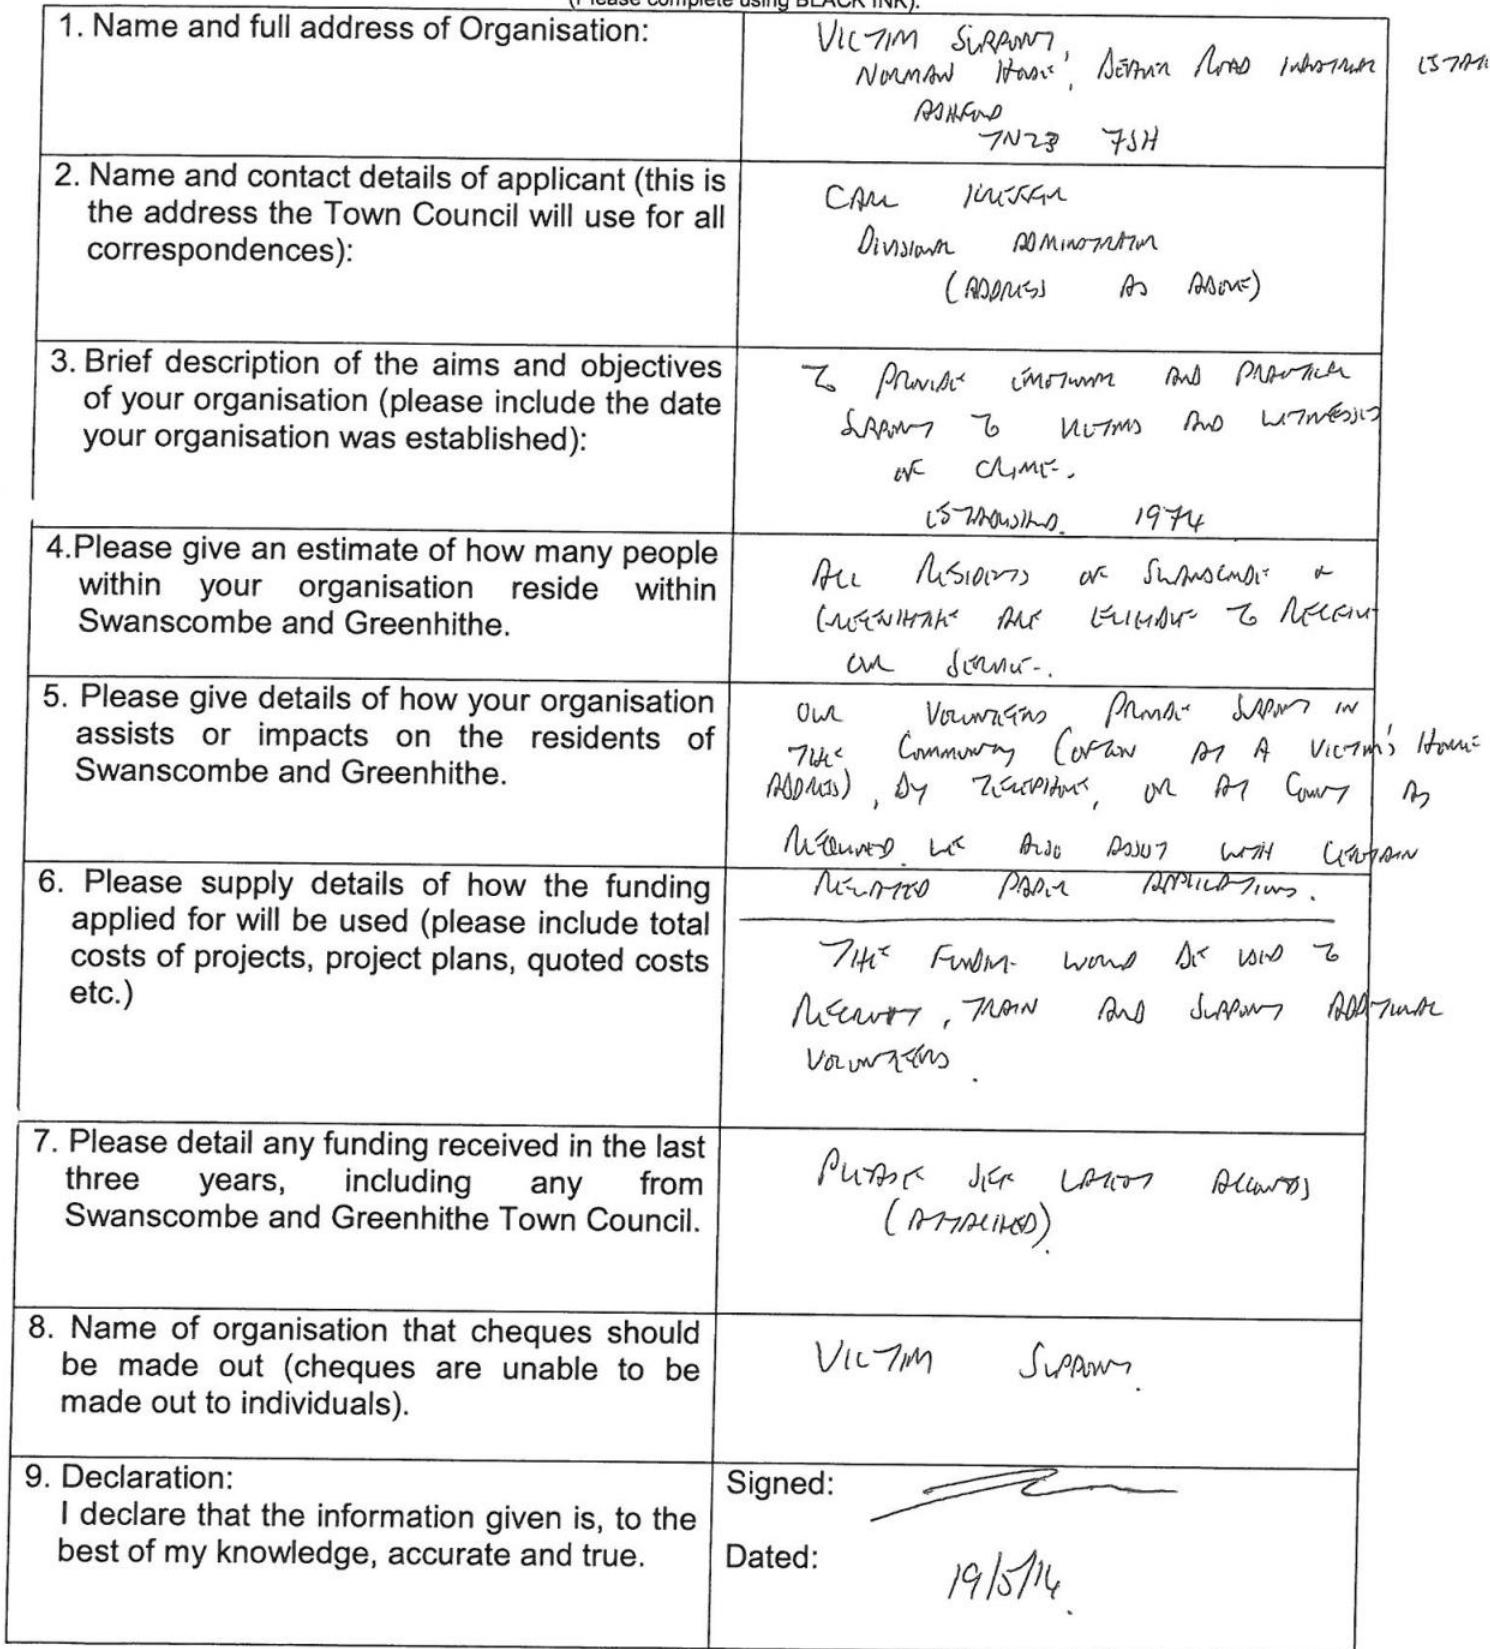 (Please complete using BLACK INK).
1. Name and full address of Organisation:
VICTIM SUPPORT,
NORMAN HOUSE, BEAVER ROAD INDUSTRIAL ESTATE
ASHFORD
TN23 7SH
2. Name and contact details of applicant (this is
the address the Town Council will use for all
correspondences):
DIVISIONAL ADMINISTRATOR
(ADDRESS AS ABOVE)
3. Brief description of the aims and objectives
of your organisation (please include the date
your organisation was established):
TO PROVIDE EMOTIONAL AND PRACTICAL
SUPPORT TO VICTIMS AND WITNESSES
OF CRIME.
ESTABLISHED. 1974
4.Please give an estimate of how many people
within your organisation reside within
Swanscombe and Greenhithe.
ALL RESIDENTS OF SWANSCOMBE &
GREENHITHE ARE ELIGIBLE TO RECEIVE
OUR SERVICE.
5. Please give details of how your organisation
assists or impacts on the residents of
Swanscombe and Greenhithe.
OUR VOLUNTEERS PROVIDE SUPPORT IN
THE COMMUNITY (OFTEN AT A VICTIM'S HOME
ADDRESS), BY TELEPHONE, OR AT COURT AS
REQUIRED. WE ALSO ASSIST WITH CERTAIN
RELATED PAPER APPLICATIONS.
6. Please supply details of how the funding
applied for will be used (please include total
costs of projects, project plans, quoted costs
etc.)
THE FUNDING WOULD BE USED TO
RECRUIT, TRAIN AND SUPPORT ADDITIONAL
VOLUNTEERS.
7. Please detail any funding received in the last
three years, including any from
Swanscombe and Greenhithe Town Council.
PLEASE SEE LATEST ACCOUNTS
(ATTACHED).
8. Name of organisation that cheques should
be made out (cheques are unable to be
made out to individuals).
VICTIM SUPPORT.
9. Declaration:
I declare that the information given is, to the
best of my knowledge, accurate and true.
Signed:
Dated:
19/5/14.